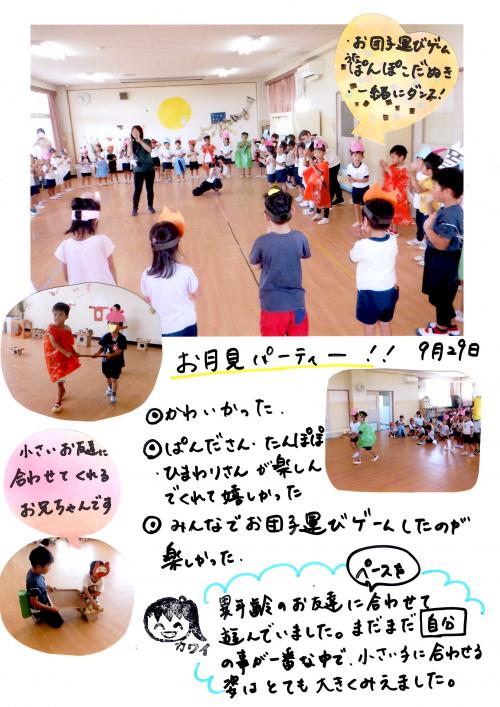 ・お団子運びゲーム
うた
・ぽんぽこだぬき
・一緒にダンス!
お月見パーティー!! 9月29日
◎かわいかった.
◎ぱんださん・たんぽぽ
・ひまわりさんが楽しん
でくれて嬉しかった
◎みんなでお団子運びゲームしたのが
楽しかった.
小さいお友達に
合わせてくれる
お兄ちゃんです
ペースを
異年齢のお友達に合わせて
遊んでいました。まだまだ自分
の事が一番な中で、小さい子に合わせる
姿はとても大きくみえました。
カワイ